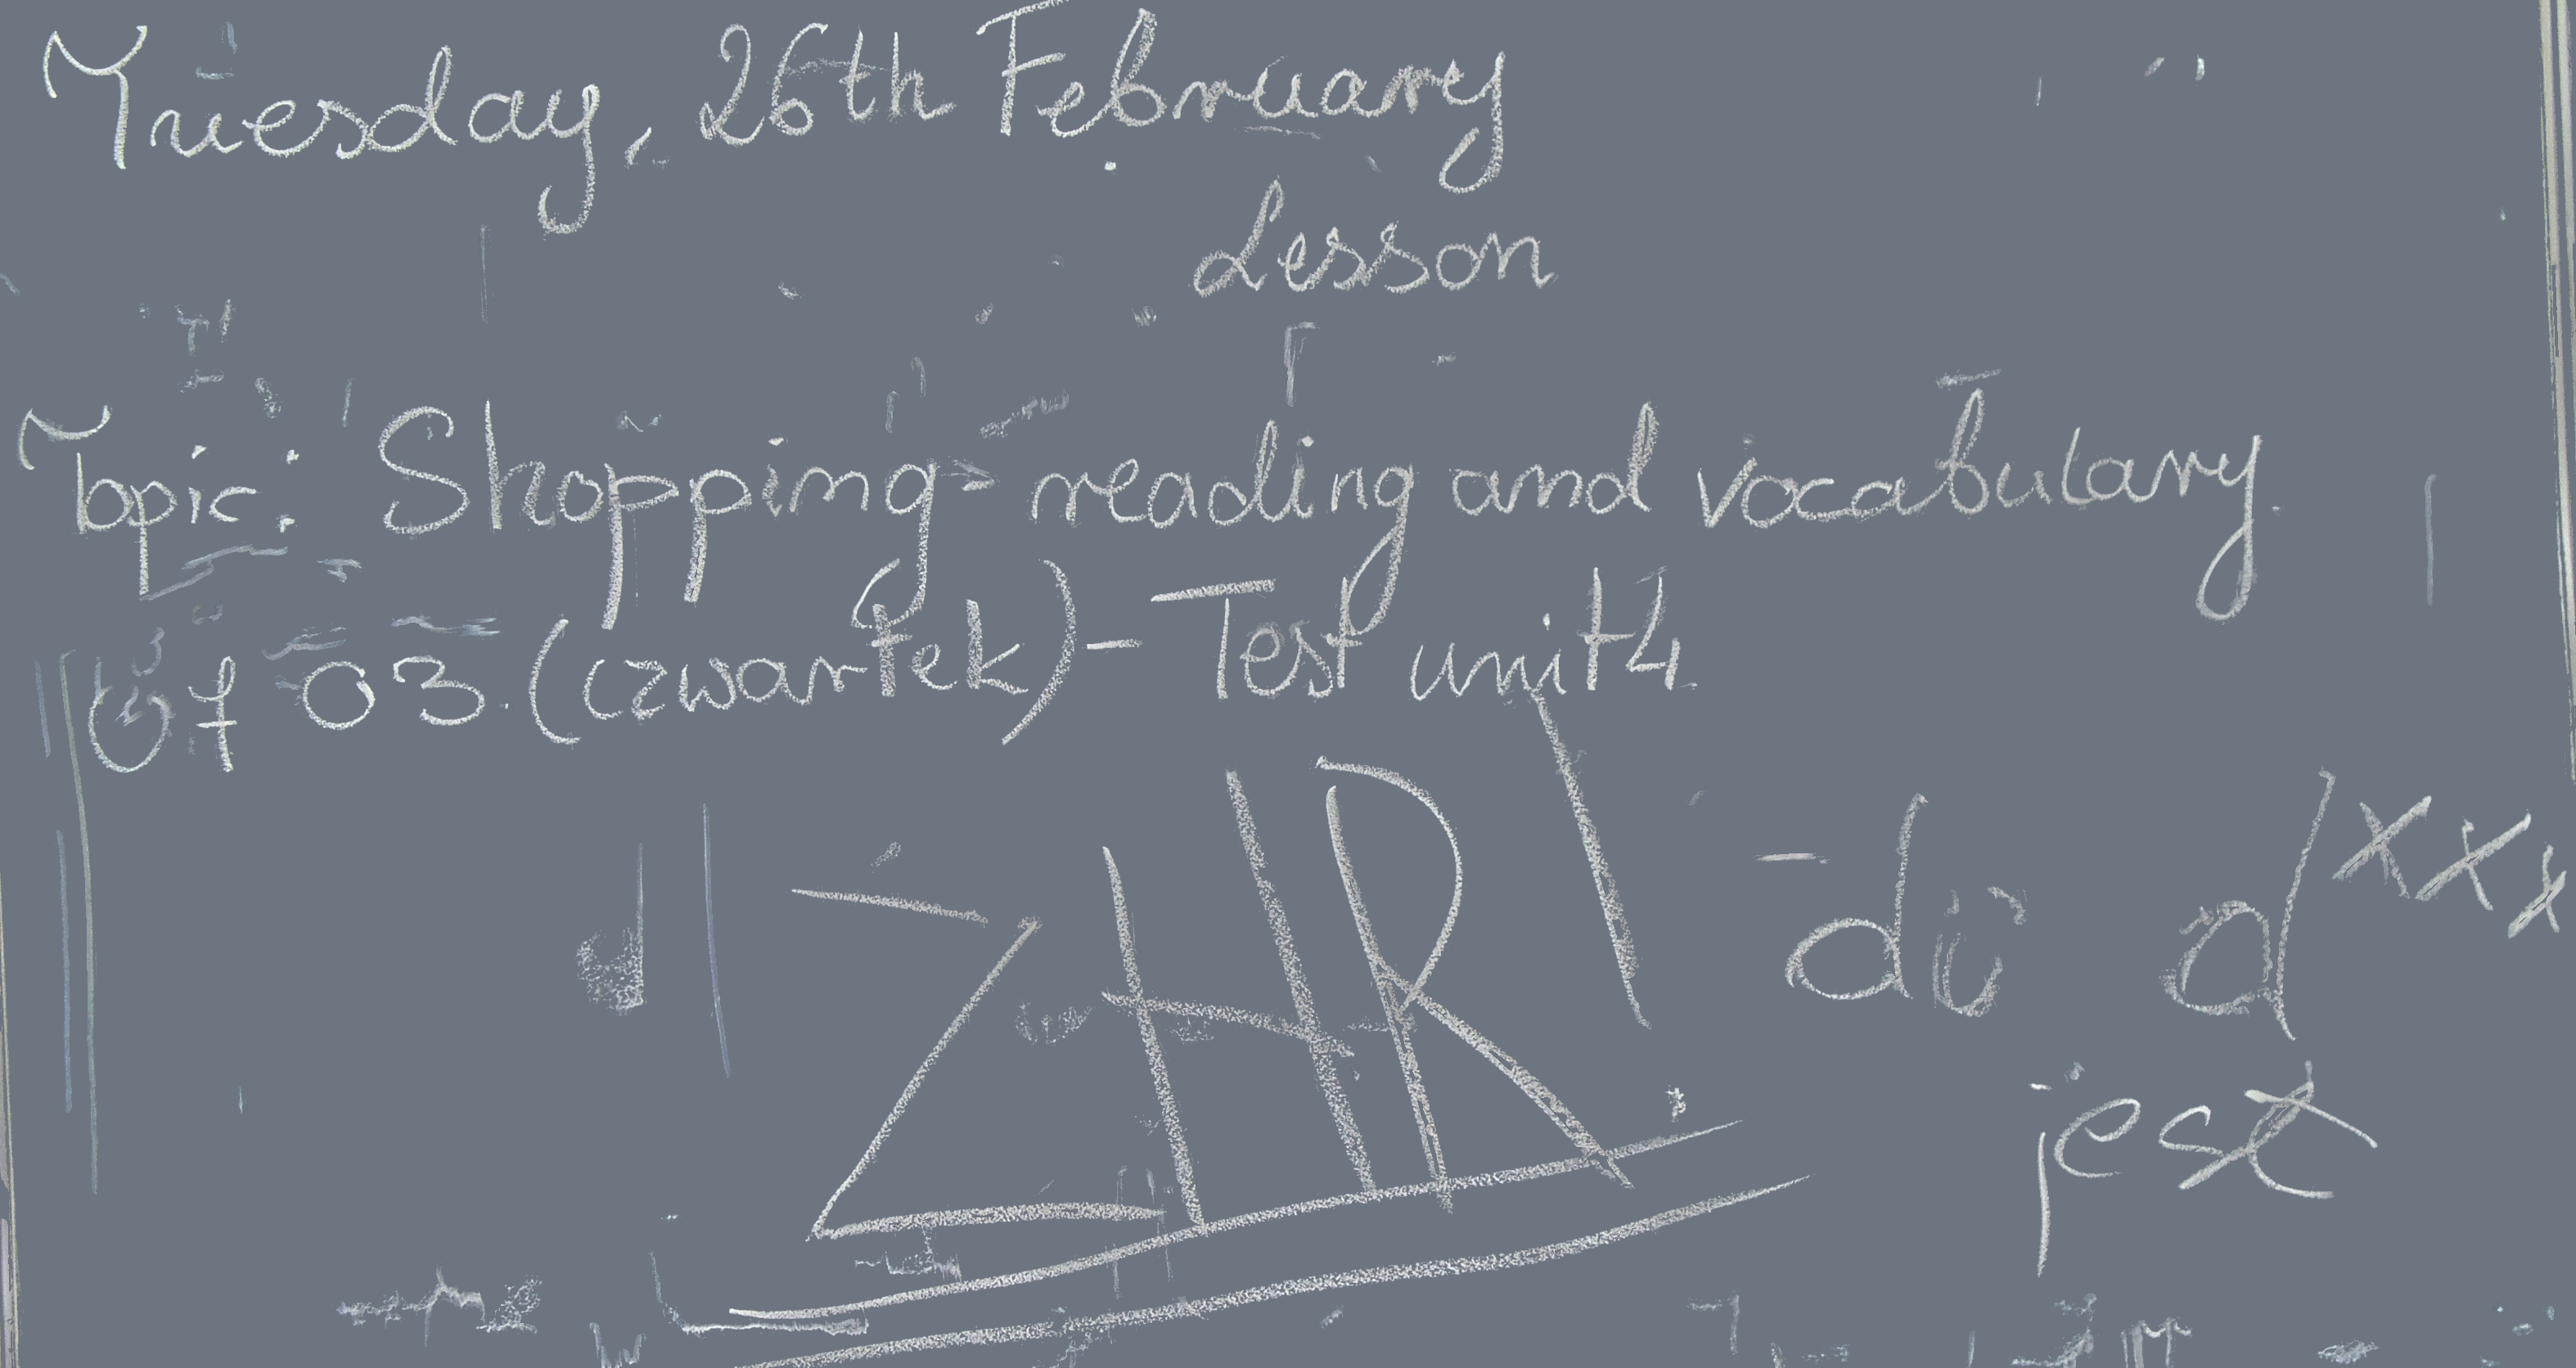 Tuesday, 26th February
Lesson
Topic: Shopping - reading and vocabulary.
07 03. (czwartek) - Test unit 4
ZHR
jest